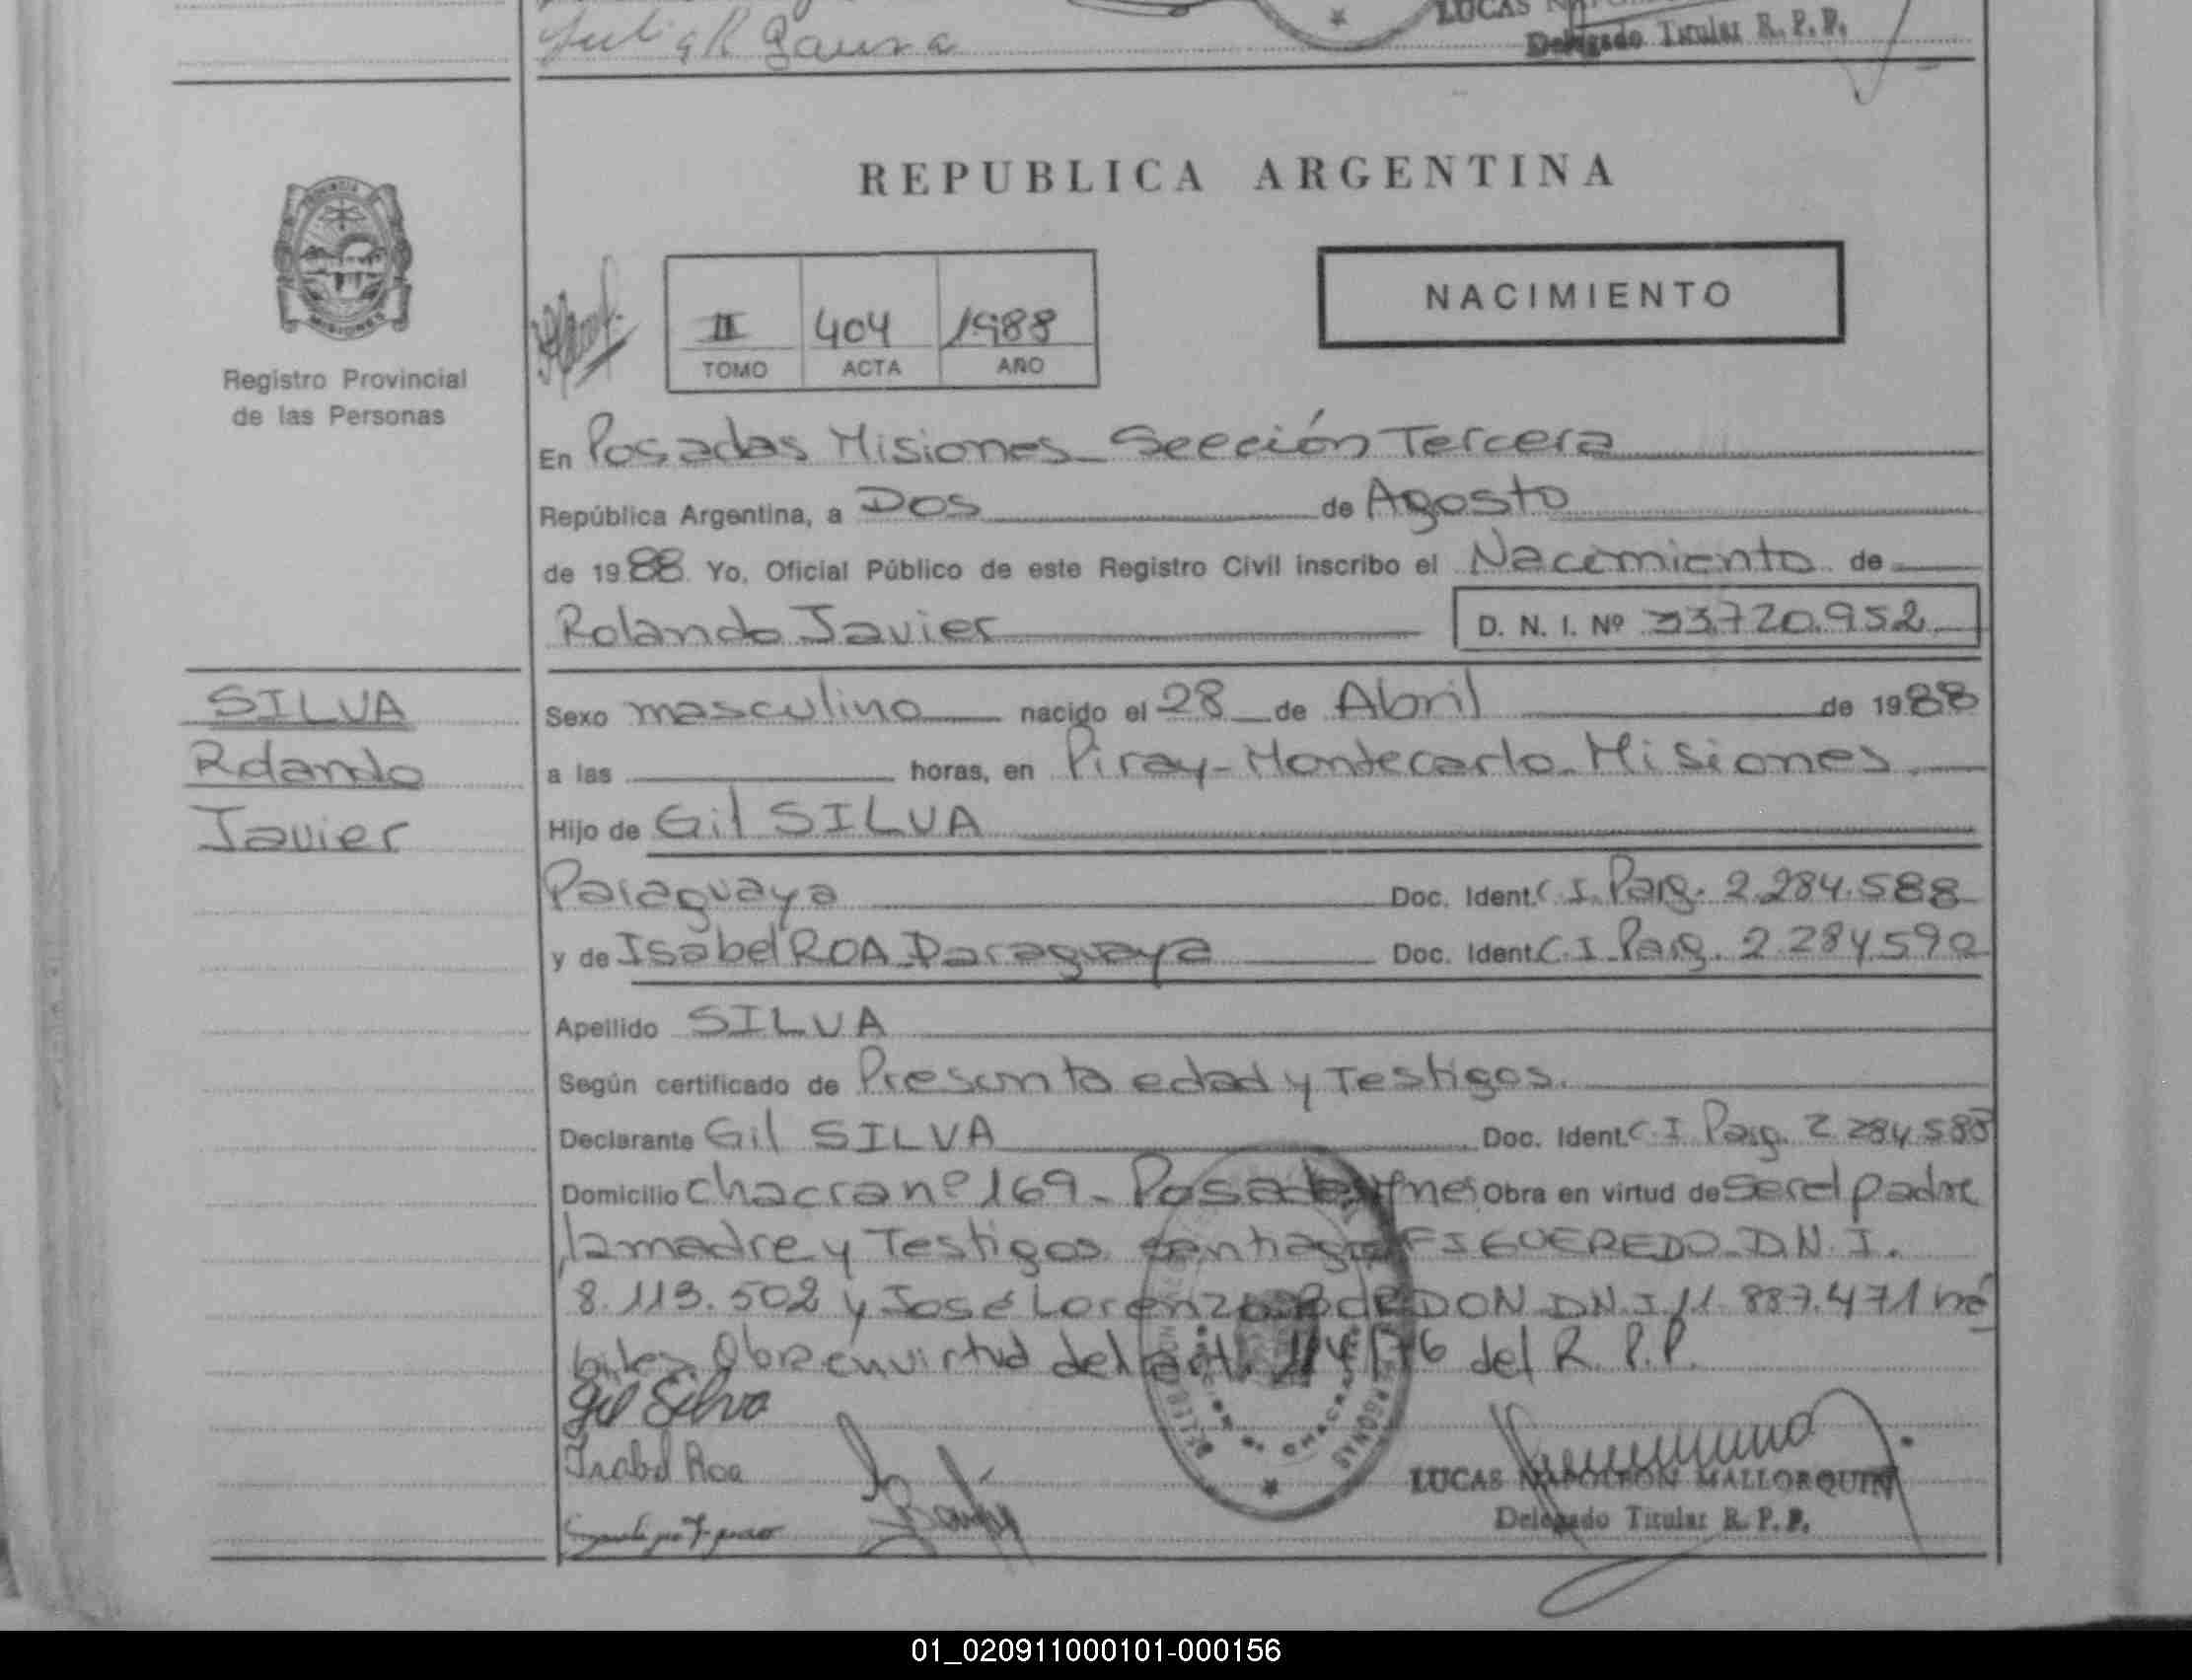 Delegado Titular R. P. P.
REPUBLICA ARGENTINA
PROVINCIA
MISIONES
Registro Provincial
de las Personas
II 404 1988
TOMO ACTA AÑO
NACIMIENTO
En Posadas Misiones Sección Tercera
República Argentina, a Dos de Agosto
de 1988 Yo, Oficial Público de este Registro Civil inscribo el Nacimiento de
Rolando Javier D. N. I. Nº 33.720.952
SILVA
Rolando
Javier
Sexo masculino nacido el 28 de Abril de 1988
a las horas, en Piray-Montecarlo-Misiones
Hijo de Gil SILVA
Paraguaya Doc. Ident. C.I. Parg. 2.284.588
y de Isabel ROA Paraguaya Doc. Ident. C.I. Parg. 2.284.592
Apellido SILVA
Según certificado de Presunta edad y Testigos.
Declarante Gil SILVA Doc. Ident. C.I. Parg. 2.284.588
Domicilio chacra nº 169 - Posadas Mnes Obra en virtud de ser el padre
la madre y Testigos Santiago FIGUEREDO D.N.I.
8.113.502 y José Lorenzo D.N.I 11.887.471 há
biles Obra en virtud del art. 114/76 del R. P. P.
Gil Silva
Isabel Roa
LUCAS NAPOLEON MALLORQUIN
Delegado Titular R. P. P.
01_020911000101-000156